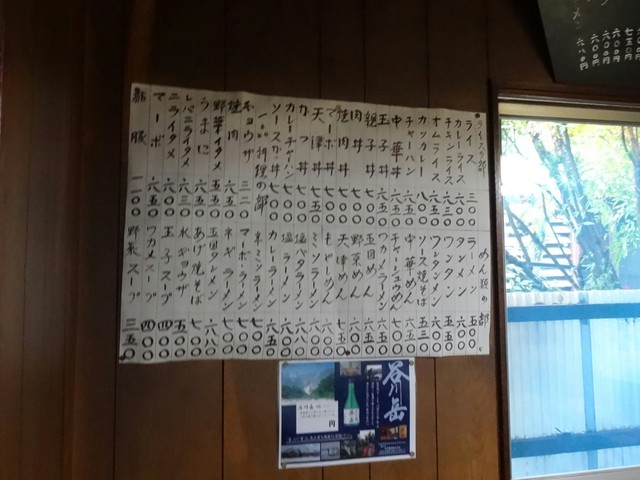 ライスの部
ライス 三〇〇
カレーライス 六〇〇
チキンライス 六三〇
オムライス 六五〇
カツカレー 八五〇
チャーハン 六〇〇
中華丼 六五〇
玉子丼 六〇〇
親子丼 六五〇
肉丼 七〇〇
焼肉丼 七〇〇
マーボ丼 七〇〇
天津丼 七五〇
カツ丼 七〇〇
カレーチャーハン 七〇〇
ソースカツ丼 七〇〇
一品料理の部
ギョウザ 三二〇
焼肉 六五〇
野菜イタメ 五五〇
うまに 六五〇
レバニライタメ 六三〇
ニライタメ 六〇〇
マーボ 六五〇
めん類の部
ラーメン 五〇〇
タンメン 六〇〇
ワンタンメン 六五〇
ソース焼そば 五三〇
中華めん 六五〇
チャーシュウめん 七〇〇
ワカメラーメン 六五〇
五目めん 六五〇
野菜めん 六〇〇
天津めん 七五〇
もやしめん 六〇〇
ミソラーメン 六〇〇
塩バタラーメン 六八〇
塩ラーメン 六〇〇
カレーラーメン 六五〇
ネミソラーメン 七〇〇
マーボーラーメン 七〇〇
ネギラーメン 七〇〇
五目タンメン 六八〇
あげ焼そば 七〇〇
水ギョウザ 五〇〇
玉子スープ 四〇〇
ワカメスープ 四〇〇
野菜スープ 三五〇
谷川岳
円